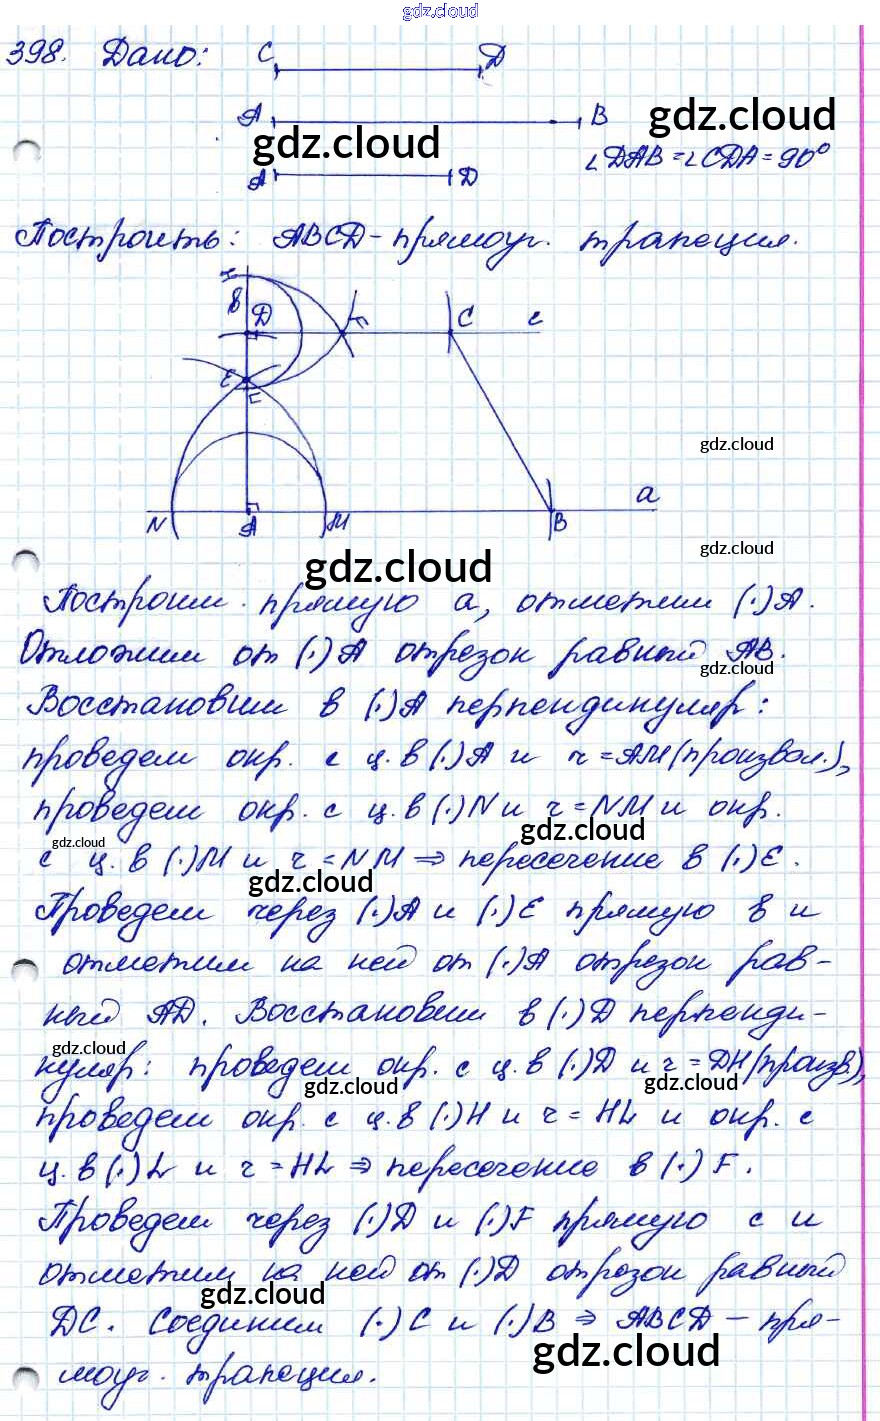 gdz.cloud
398. Дано: C D
A B gdz.cloud
gdz.cloud
A D ∠DAB = ∠CDA = 90°
Построить: ABCD - прямоуг. трапеция.
H
в D F C c
E
L
gdz.cloud
N A M B a
gdz.cloud
gdz.cloud
Построим прямую a, отметим (.)A.
Отложим от (.)A отрезок равный AB.
gdz.cloud
Восстановим в (.)A перпендикуляр:
проведем окр. с ц. в (.)A и r = AM (произвол.),
проведем окр. с ц. в (.)N и r = NM и окр.
gdz.cloud gdz.cloud
с ц. в (.)M и r = NM ⇒ пересечение в (.)E.
gdz.cloud
Проведем через (.)A и (.)E прямую в и
отметим на ней от (.)A отрезок рав-
ный AD. Восстановим в (.)D перпенди-
gdz.cloud
куляр: проведем окр. с ц. в (.)D и r = DH (произв.),
gdz.cloud gdz.cloud
проведем окр. с ц. в (.)H и r = HL и окр. с
ц. в (.)L и r = HL ⇒ пересечение в (.)F.
Проведем через (.)D и (.)F прямую c и
отметим на ней от (.)D отрезок равный
gdz.cloud
DC. Соединим (.)C и (.)B ⇒ ABCD - пря-
gdz.cloud
моуг. трапеция.